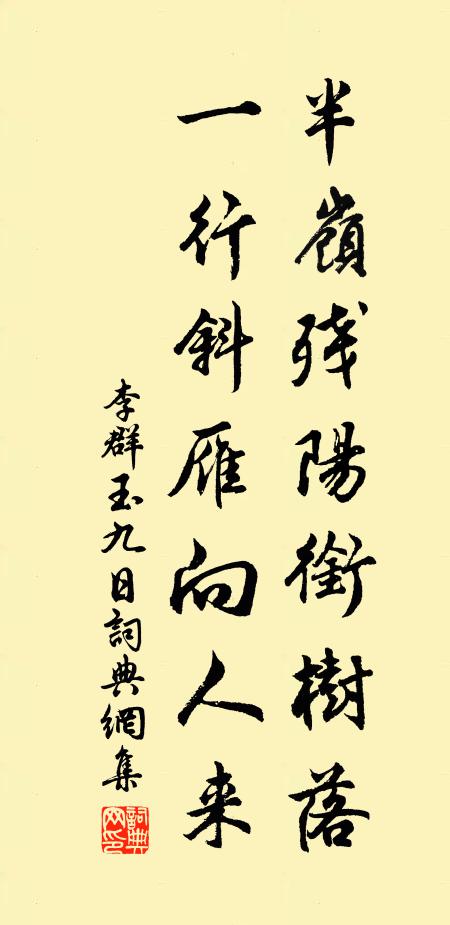 半嶺残陽銜樹落
一行斜雁向人来
李群玉九日詞典網集
詞典網印